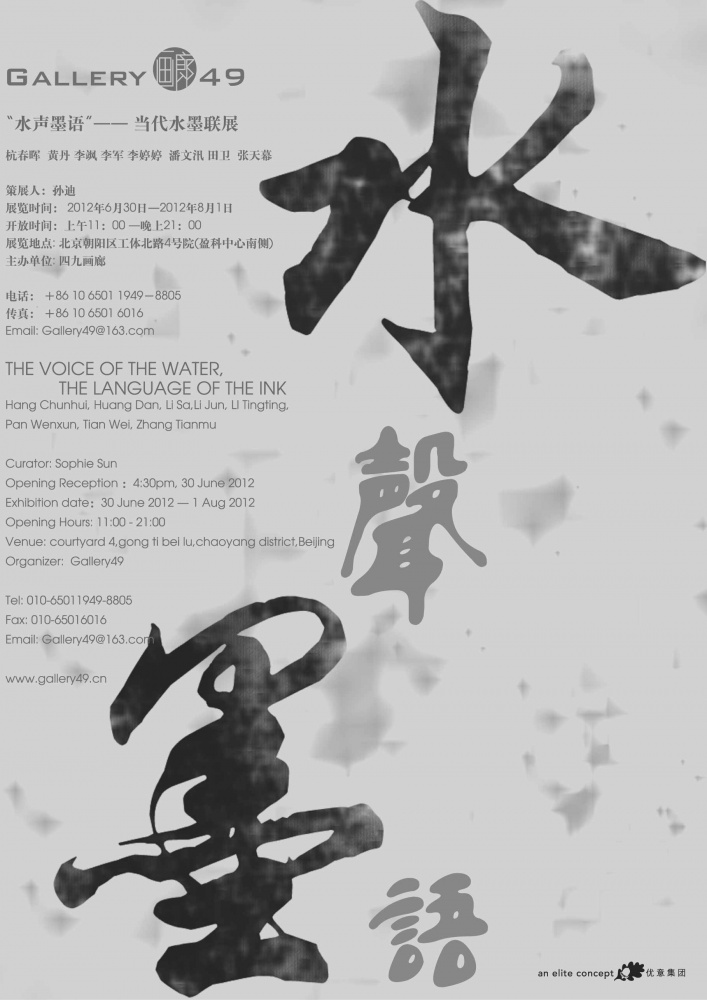 GALLERY 画廊 49
“水声墨语”—— 当代水墨联展
杭春晖 黄丹 李飒 李军 李婷婷 潘文汛 田卫 张天幕
策展人：孙迪
展览时间： 2012年6月30日—2012年8月1日
开放时间：上午11：00 —晚上21：00
展览地点: 北京朝阳区工体北路4号院(盈科中心南侧)
主办单位: 四九画廊
电话： +86 10 6501 1949—8805
传真： +86 10 6501 6016
Email: Gallery49@163.com
THE VOICE OF THE WATER,
THE LANGUAGE OF THE INK
Hang Chunhui, Huang Dan, Li Sa,Li Jun, LI Tingting,
Pan Wenxun, Tian Wei, Zhang Tianmu
Curator: Sophie Sun
Opening Reception： 4:30pm, 30 June 2012
Exhibition date： 30 June 2012 — 1 Aug 2012
Opening Hours: 11:00 - 21:00
Venue: courtyard 4,gong ti bei lu,chaoyang district,Beijing
Organizer: Gallery49
Tel: 010-65011949-8805
Fax: 010-65016016
Email: Gallery49@163.com
www.gallery49.cn
水
聲
墨
語
an elite concept 优意集团